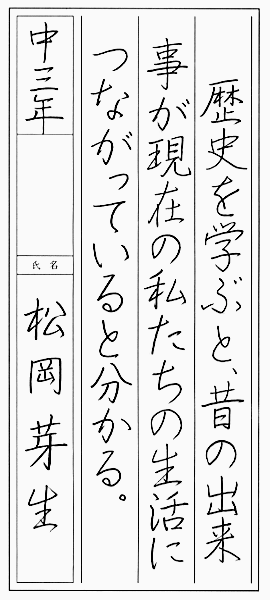 歴史を学ぶと、昔の出来
事が現在の私たちの生活に
つながっていると分かる。
中三年
氏名
松岡芽生